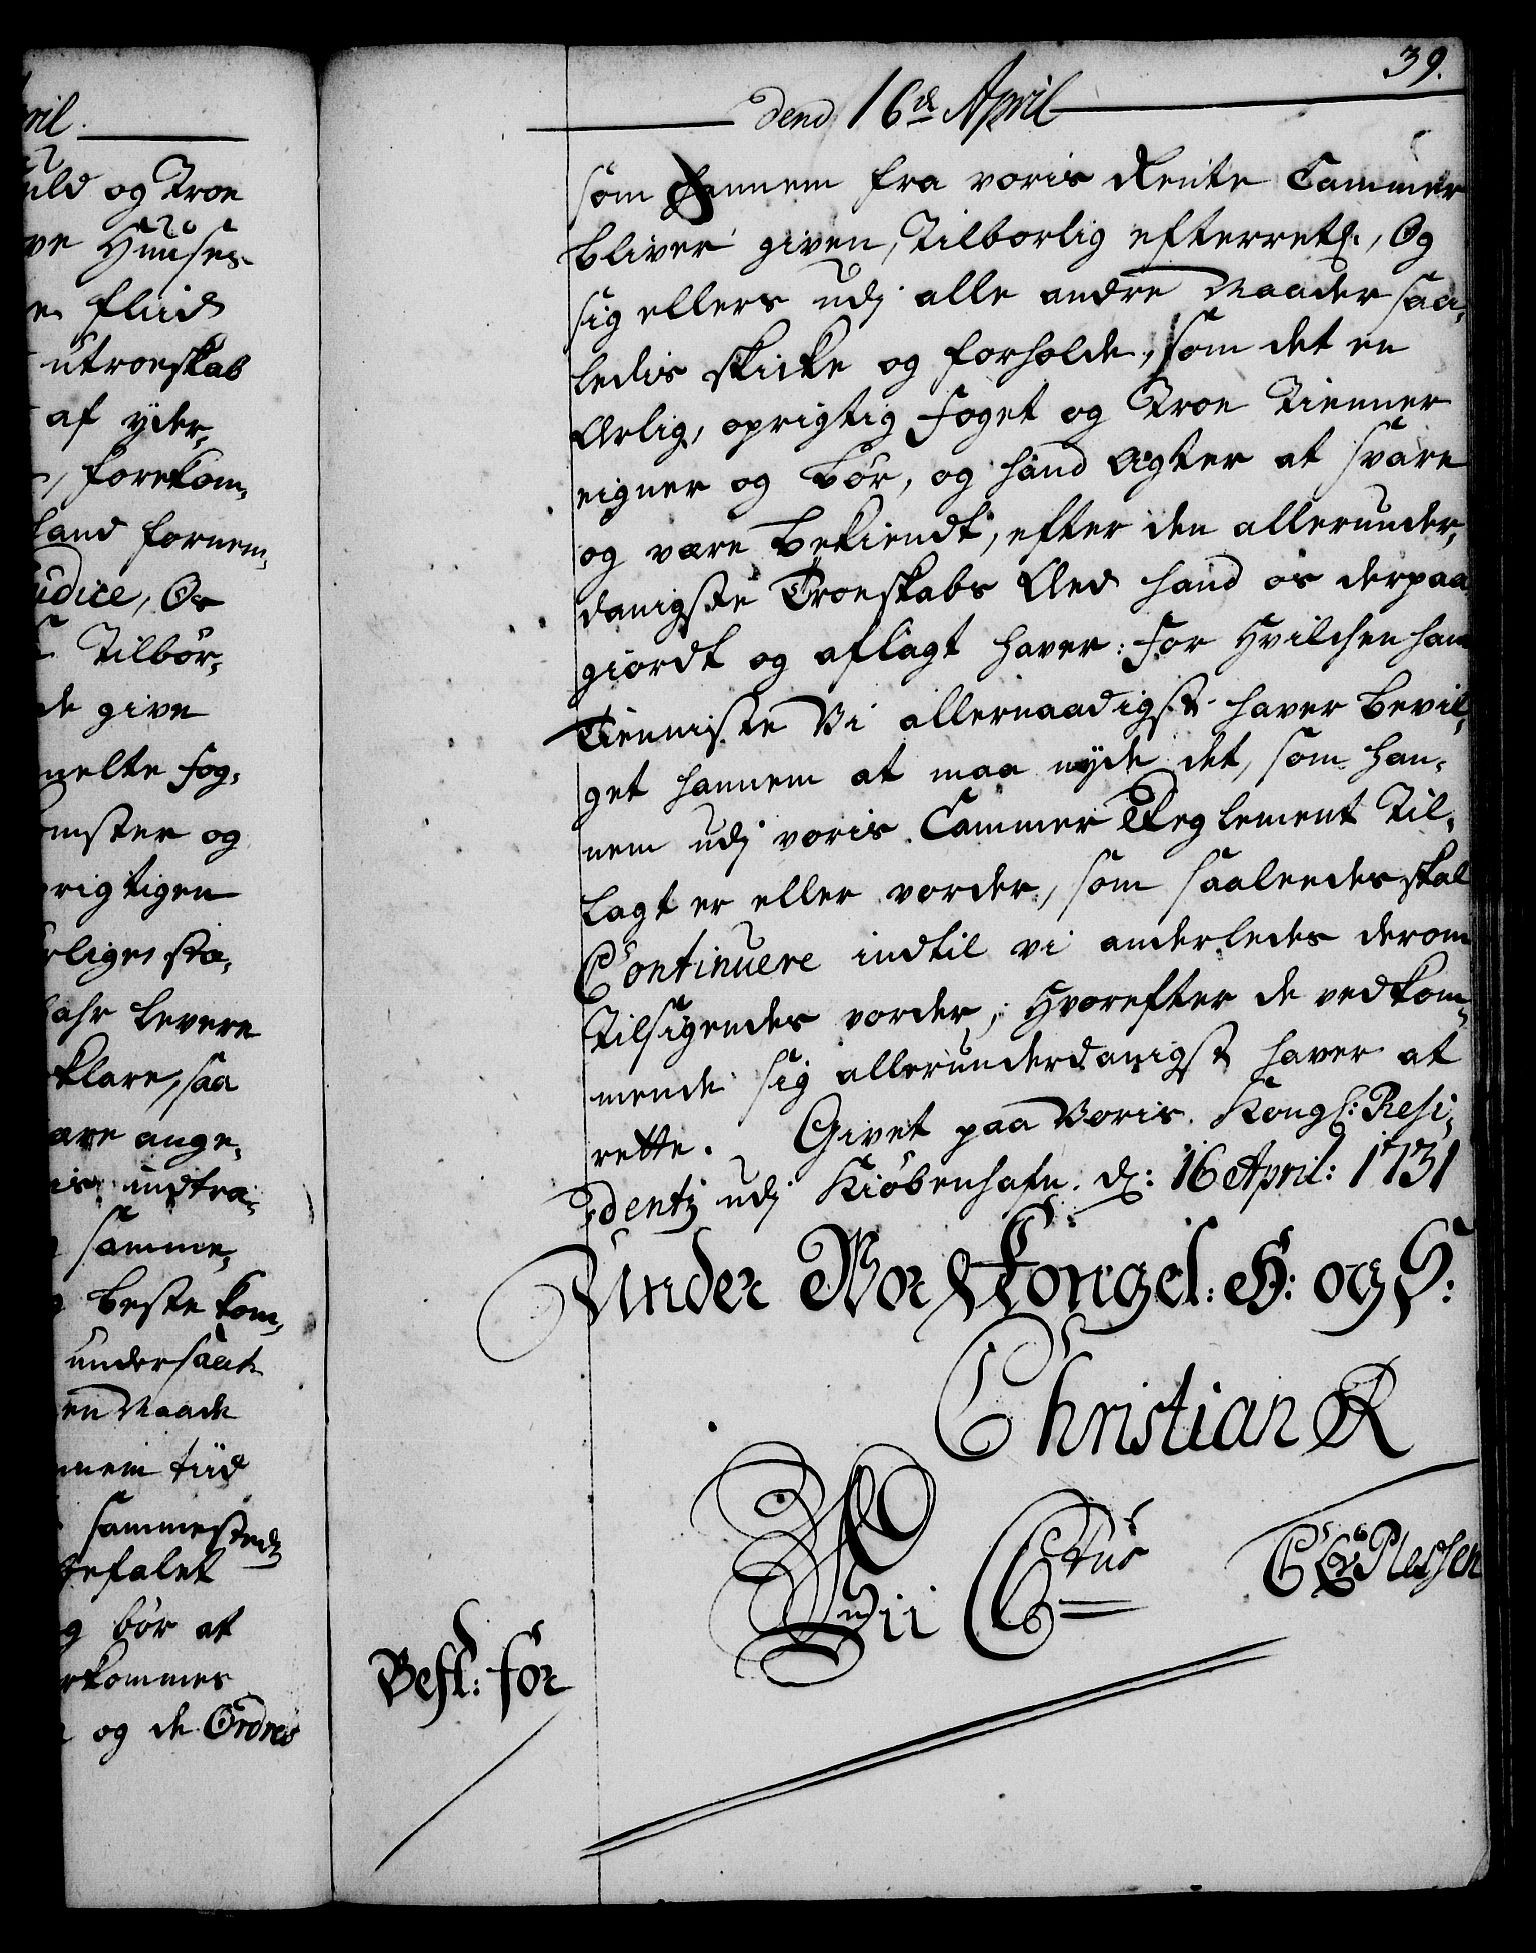 ril
uld og Troe
ve Huuses
e flid
utroeskab
af yder,
, forekom,
land fornem,
udice, Os
Tilbør,
de give
melte fog,
omster og
rigtigen
rliges sta,
aahr levere
klare, saa
are ange,
is undra,
samme,
beste kom,
undersaat
en Maade
mem tiid
sammested
befalet
g bør at
rkommes
og de Ordres
39.
Dend 16de April
som hannem fra voris Rente Cammer
bliver given, Tilborlig efterretn:, Og
sig ellers udj alle andre Maader saa,
ledis skicke og forholde, som det en
Ærlig, oprigtig foget og Troe Tienner
eigner og bør, og hand Agter at svare
og være bekiendt, efter den allerunder,
danigste Troeskabs Æed hand os derpaa
giordt og aflagt haver: for Hvilchen hans
Tienniste Vi allernaadigst haver bevil,
get hannem at maa nyde det, som han,
nem udj voris Cammer Reglement Til,
lagt er eller vorder, som saaleedes skal
Continuere indtil vi anderledes derom
Tilsigendes vorder, Hvorefter de vedkom,
mende sig allerunderdanigst haver at
rette. Givet paa Voris Kongl: Resi,
dentz udj Kiøbenhafn. d: 16 April: 1731
Under Vor Kongel: H: og S:
Christian R
C A v Plessen
Best: for